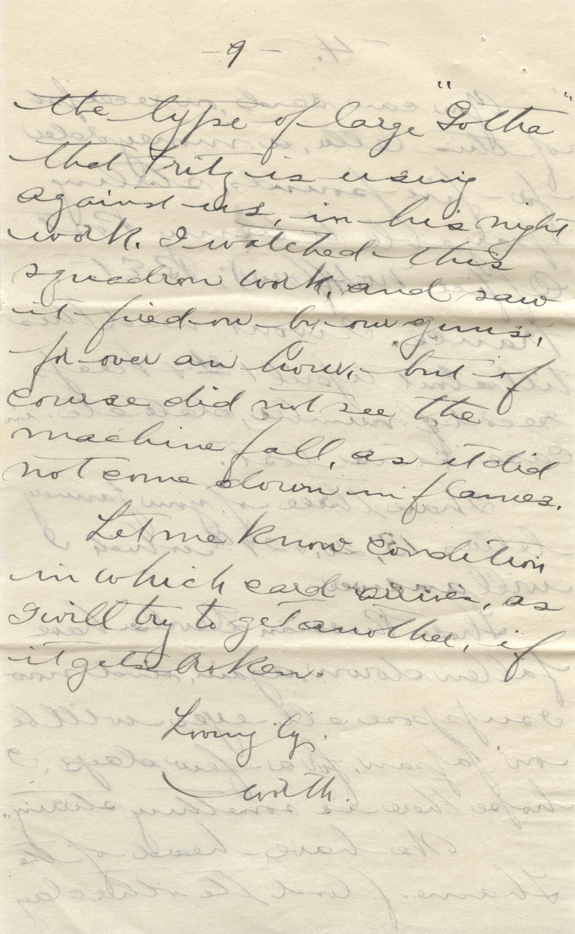 - 9 -
the type of large "Gotha"
that Fritz is using
against us, in his night
work. I watched this
squadron work, and saw
it fired on by our guns,
for over an hour, but of
course did not see the
machine fall, as it did
not come down in flames.
Let me know condition
in which card arrives, as
I will try to get another, if
it gets broken.
Lovingly.
Worth.